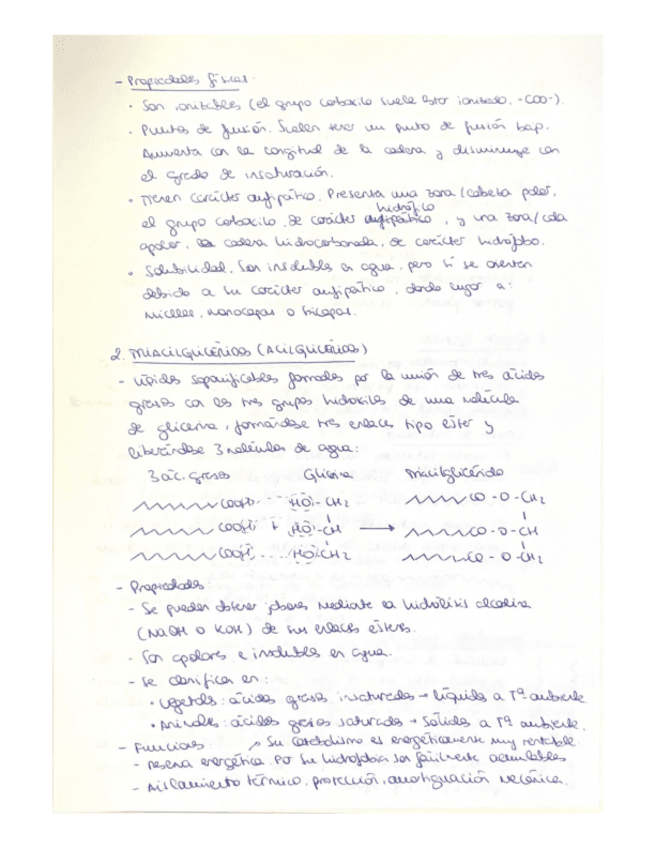 - Propiedades físicas.
• Son ionizables (el grupo carboxilo suele estar ionizado, -COO-).
• Puntos de fusión. Suelen tener un punto de fusión bajo.
Aumenta con la longitud de la cadena y disminuye con
el grado de insaturación.
• Tienen carácter anfipático. Presenta una zona/cabeza polar,
hidrófilo
el grupo carboxilo, de carácter anfipático, y una zona/cola
apolar, la cadena hidrocarbonada, de carácter hidrófobo.
• Solubilidad. Son insolubles en agua, pero si se orientan
debido a su carácter anfipático, dando lugar a:
micelas, monocapas o bicapas.
2. TRIACILGLICÉRIDOS (ACILGLICÉRIDOS)
- Lípidos saponificables formados por la unión de tres ácidos
grasos con los tres grupos hidroxilos de una molécula
de glicerina, formándose tres enlaces tipo éster y
liberándose 3 moléculas de agua:
3 ác. grasos Glicerina Triacilglicérido
COOH HO-CH2 CO-O-CH2
COOH + HO-CH → CO-O-CH
COOH HO-CH2 CO-O-CH2
- Propiedades:
- Se pueden obtener jabones mediante la hidrólisis alcalina
(NaOH o KOH) de sus enlaces ésteres.
- Son apolares e insolubles en agua.
- Se clasifica en:
• Vegetales: ácidos grasos insaturados → líquidos a Tª ambiente
• Animales: ácidos grasos saturados → Sólidos a Tª ambiente.
- Funciones: → Su catabolismo es energéticamente muy rentable
- reserva energética. Por su hidrofobia son fácilmente acumulables
- Aislamiento térmico, protección, amortiguación mecánica.